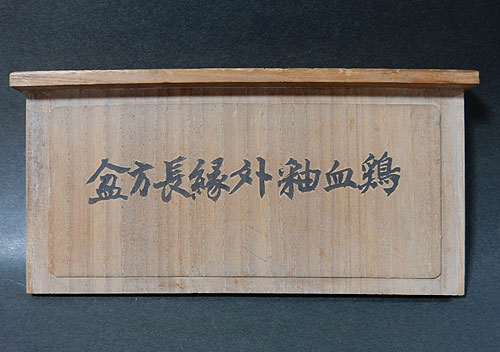 鶏血釉外縁長方盆